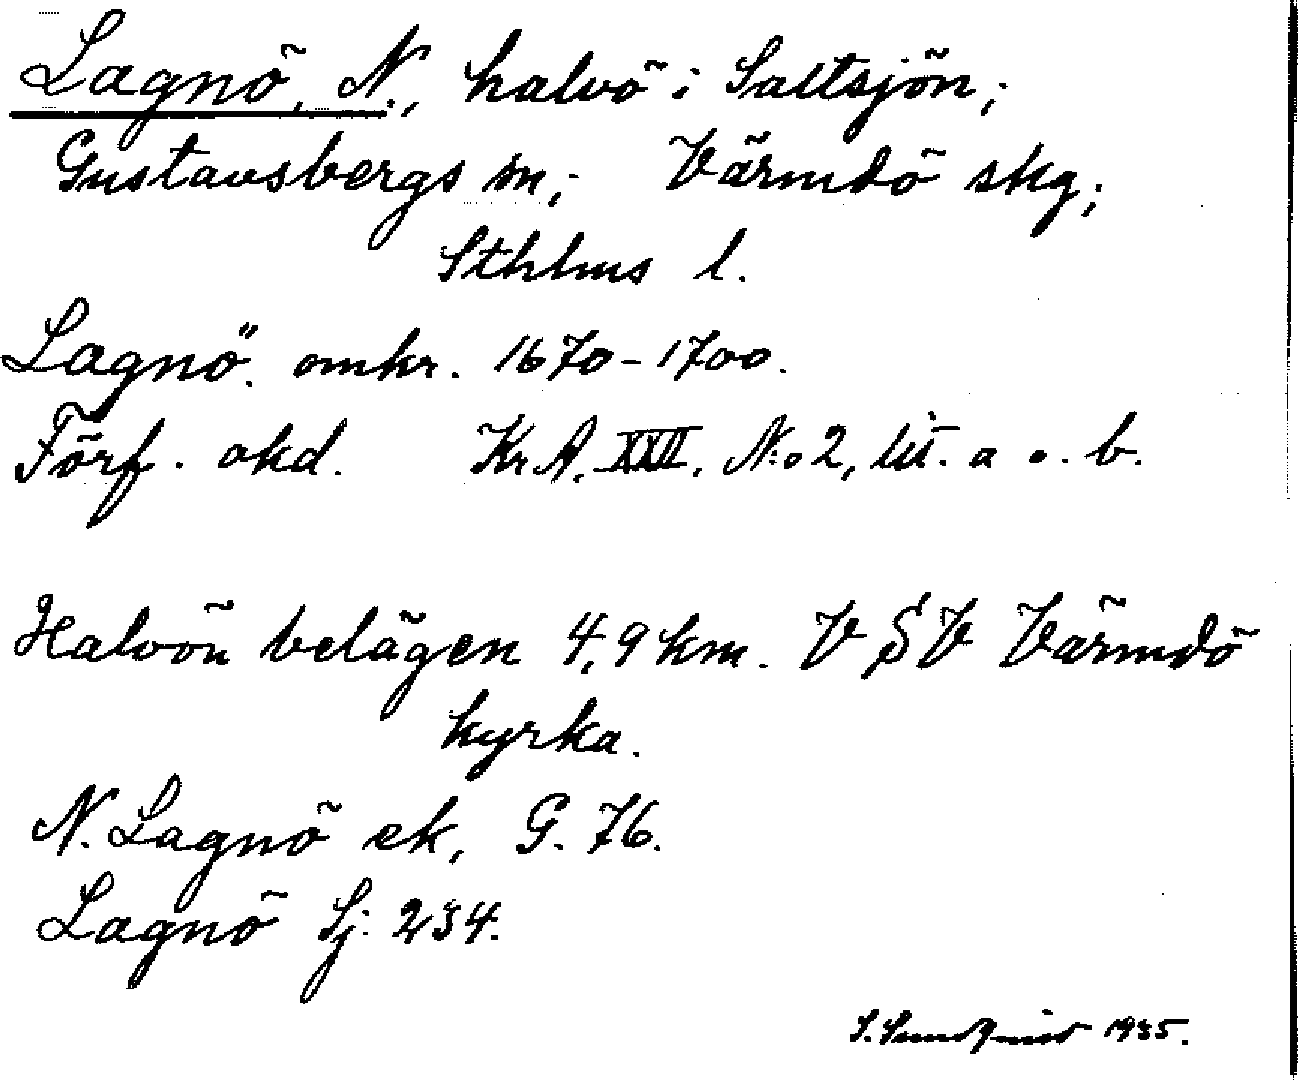 Lagnö, N., halvö i Saltsjön;
Gustavsbergs sn; Värmdö skg;
Sthlms l.
Lagnö. omkr. 1670-1700.
Förf. okd. Kr.A. XXVI, N:o 2, litt. a o. b.
Halvön belägen 4,9 km. VSV Värmdö
kyrka.
N. Lagnö ek, G. 76.
Lagnö Sj. 234.
S. Sundqvist 1935.